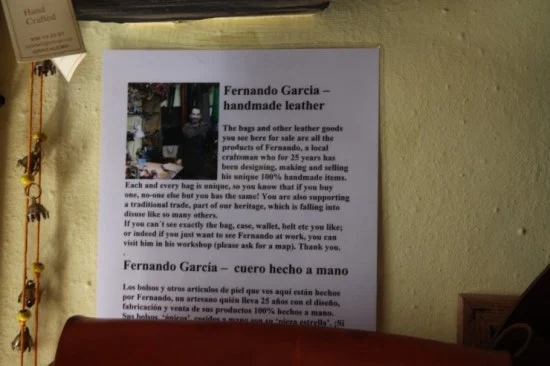 Hand
Crafted
Fernando Garcia –
handmade leather
The bags and other leather goods
you see here for sale are all the
products of Fernando, a local
craftsman who for 25 years has
been designing, making and selling
his unique 100% handmade items.
Each and every bag is unique, so you know that if you buy
one, no-one else but you has the same! You are also supporting
a traditional trade, part of our heritage, which is falling into
disuse like so many others.
If you can´t see exactly the bag, case, wallet, belt etc you like;
or indeed if you just want to see Fernando at work, you can
visit him in his workshop (please ask for a map). Thank you.
.
Fernando García – cuero hecho a mano
Los bolsos y otros artículos de piel que ves aquí están hechos
por Fernando, un artesano quién lleva 25 años con el diseño,
fabricación y venta de sus productos 100% hechos a mano.
Sus bolsos, ‘únicos’, cosidos a mano con su ‘pieza estrella’. ¡Si